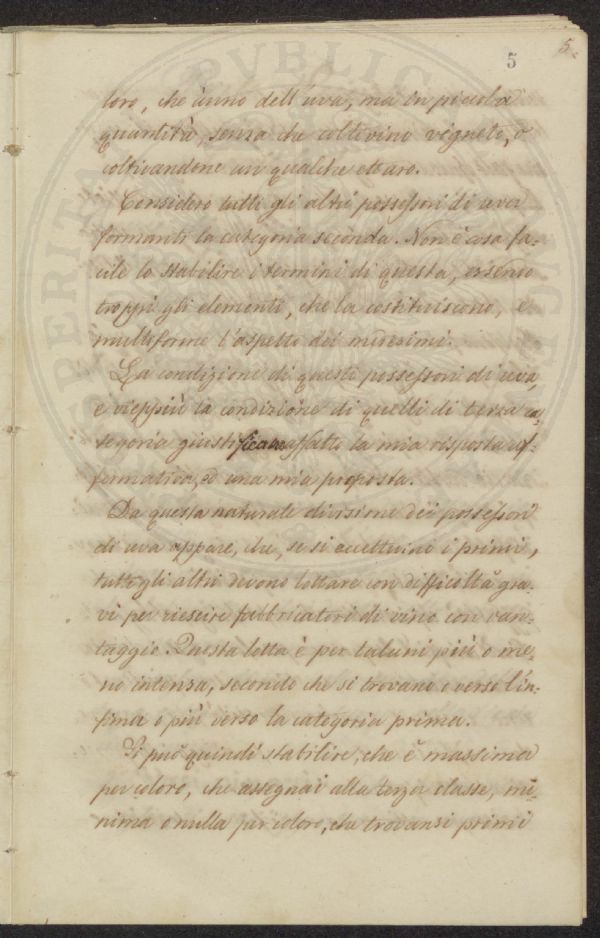 5
5.
loro, che ànno dell'uva, ma in piccola
quantità, senza che coltivino vigneto, o
coltivandone un qualche ettaro.
Considero tutti gli altri possessori di uva
formanti la categoria seconda. Non è cosa fa-
cile lo stabilire i termini di questa, essendo
troppi gli elementi, che la costituiscono, e
multiforme l'aspetto dei medesimi.
La condizione di questi possessori di uva,
e vieppiù la condizione di quelli di terza ca-
tegoria giustificano affatto la mia risposta af-
fermativa, ed una mia proposta.
Da questa naturale divisione dei possessori
di uva appare, che, se si eccettuino i primi,
tutti gli altri devono lottare con difficoltà gra-
vi per riescire fabbricatori di vino con van-
taggio. Questa lotta è per taluni più o me-
no intensa, secondo che si trovano o verso l'in-
fima o più verso la categoria prima.
Si può quindi stabilire, che è massima
per coloro, che assegnai alla terza classe, mi-
nima o nulla per coloro, che trovansi primi